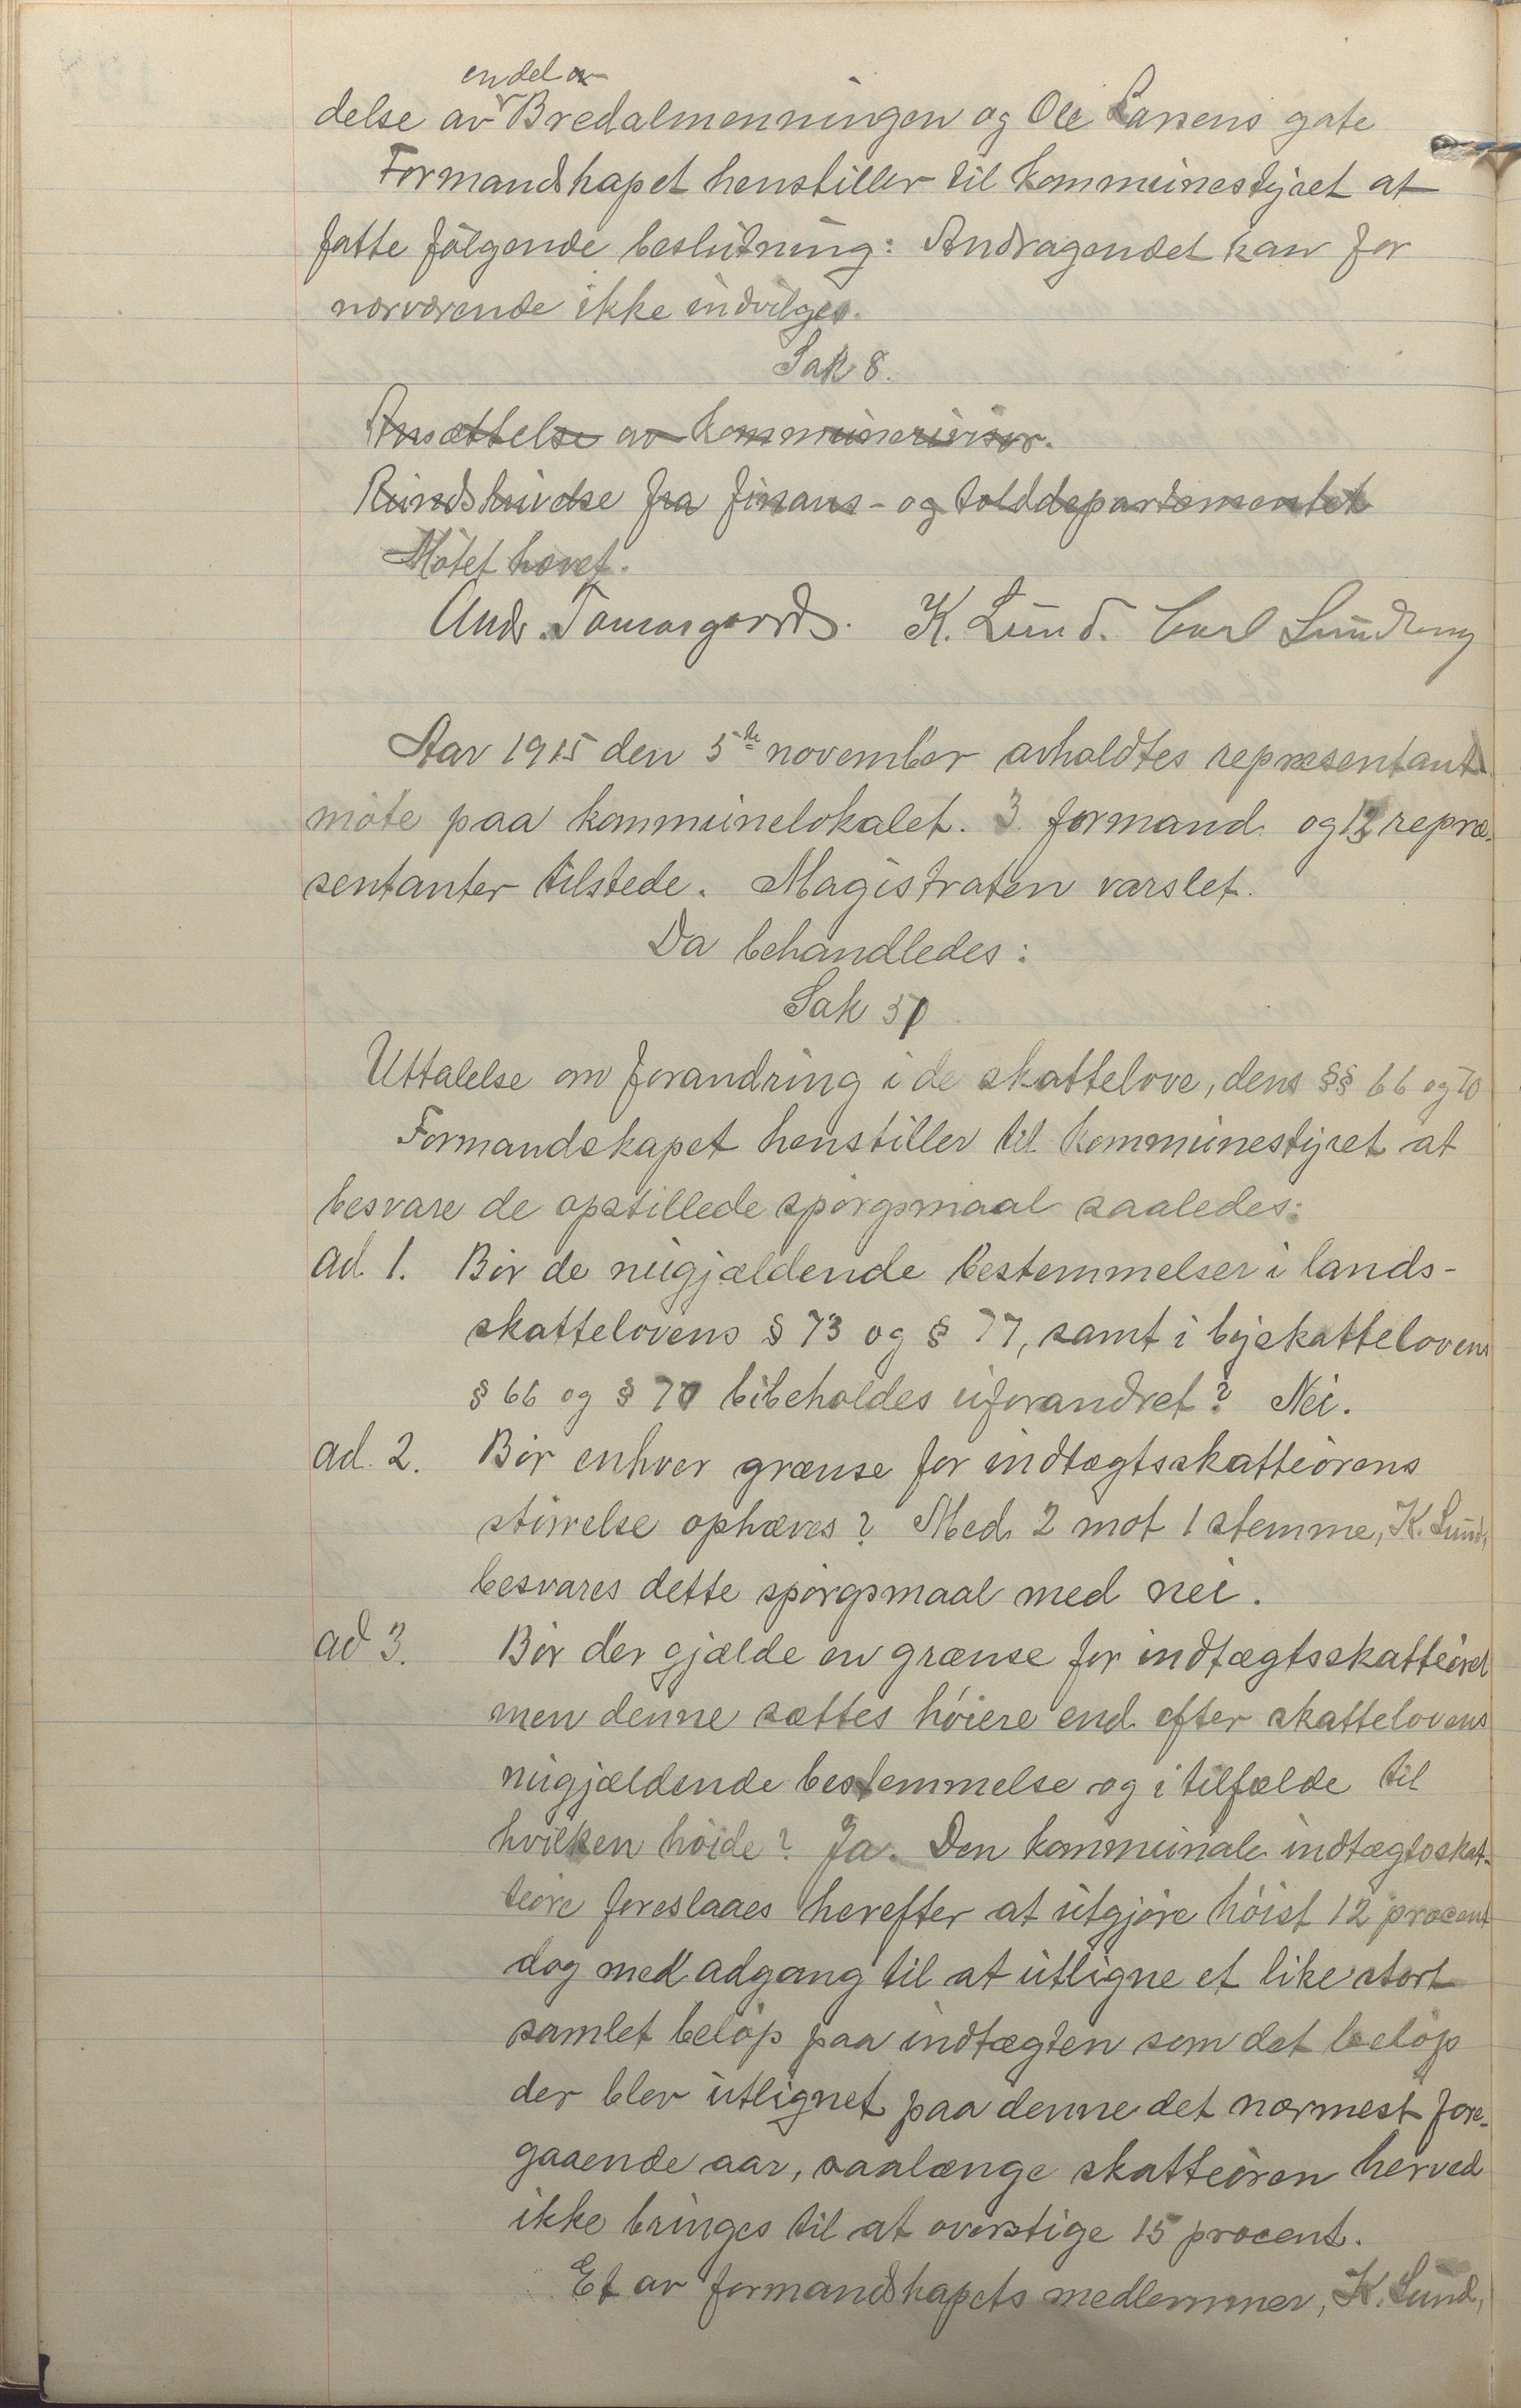 endel av
delse av Bredalmenningen og Ole Larsens gate
Formandskapet henstiller til kommunestyret at
fatte følgende beslutning: Andragendet kan for
nærværende ikke indvilges.
Sak 8.
Ansættelse av kommunerevisor.
Rundskrivelse fra finans- og tolddepartementet
Møtet hævet.
K. Lund. Carl
Aar 1915 den 5te november avholdtes repræsentant
møte paa kommunelokalet. 3 formænd og 12 repræ-
sentanter tilstede. Magistraten varslet.
Da behandledes:
Sak 51
Uttalelse om forandring i de skattelove, dens §§ 66 og 70
Formandskapet henstiller til kommunestyret at
besvare de opstillede spørgsmaal saaledes:
ad. 1. Bør de nugjældende bestemmelser i lands-
skattelovens § 73 og § 77, samt i byskattelovens
§ 66 og § 70 bibeholdes uforandret? Nei.
ad. 2. Bør enhver grænse for indtægtsskatteørens
størrelse ophæves? Med 2 mot 1 stemme, K. Lund,
besvares dette spørgsmaal med nei.
ad 3. Bør der gjælde en grænse for indtægtsskatteøret
men denne sættes høiere end efter skattelovens
nugjældende bestemmelse og i tilfælde til
hvilken høide? Ja. Den kommunale indtægtsskat-
teøre foreslaaes herefter at utgjøre høist 12 procent
dog med adgang til at utligne et like stort
samlet beløp paa indtægten som det beløp
der blev utlignet paa denne det nærmest fore-
gaaende aar, saalænge skatteøren herved
ikke bringes til at overstige 15 procent.
Et av formandskapets medlemmer, K. Lund,